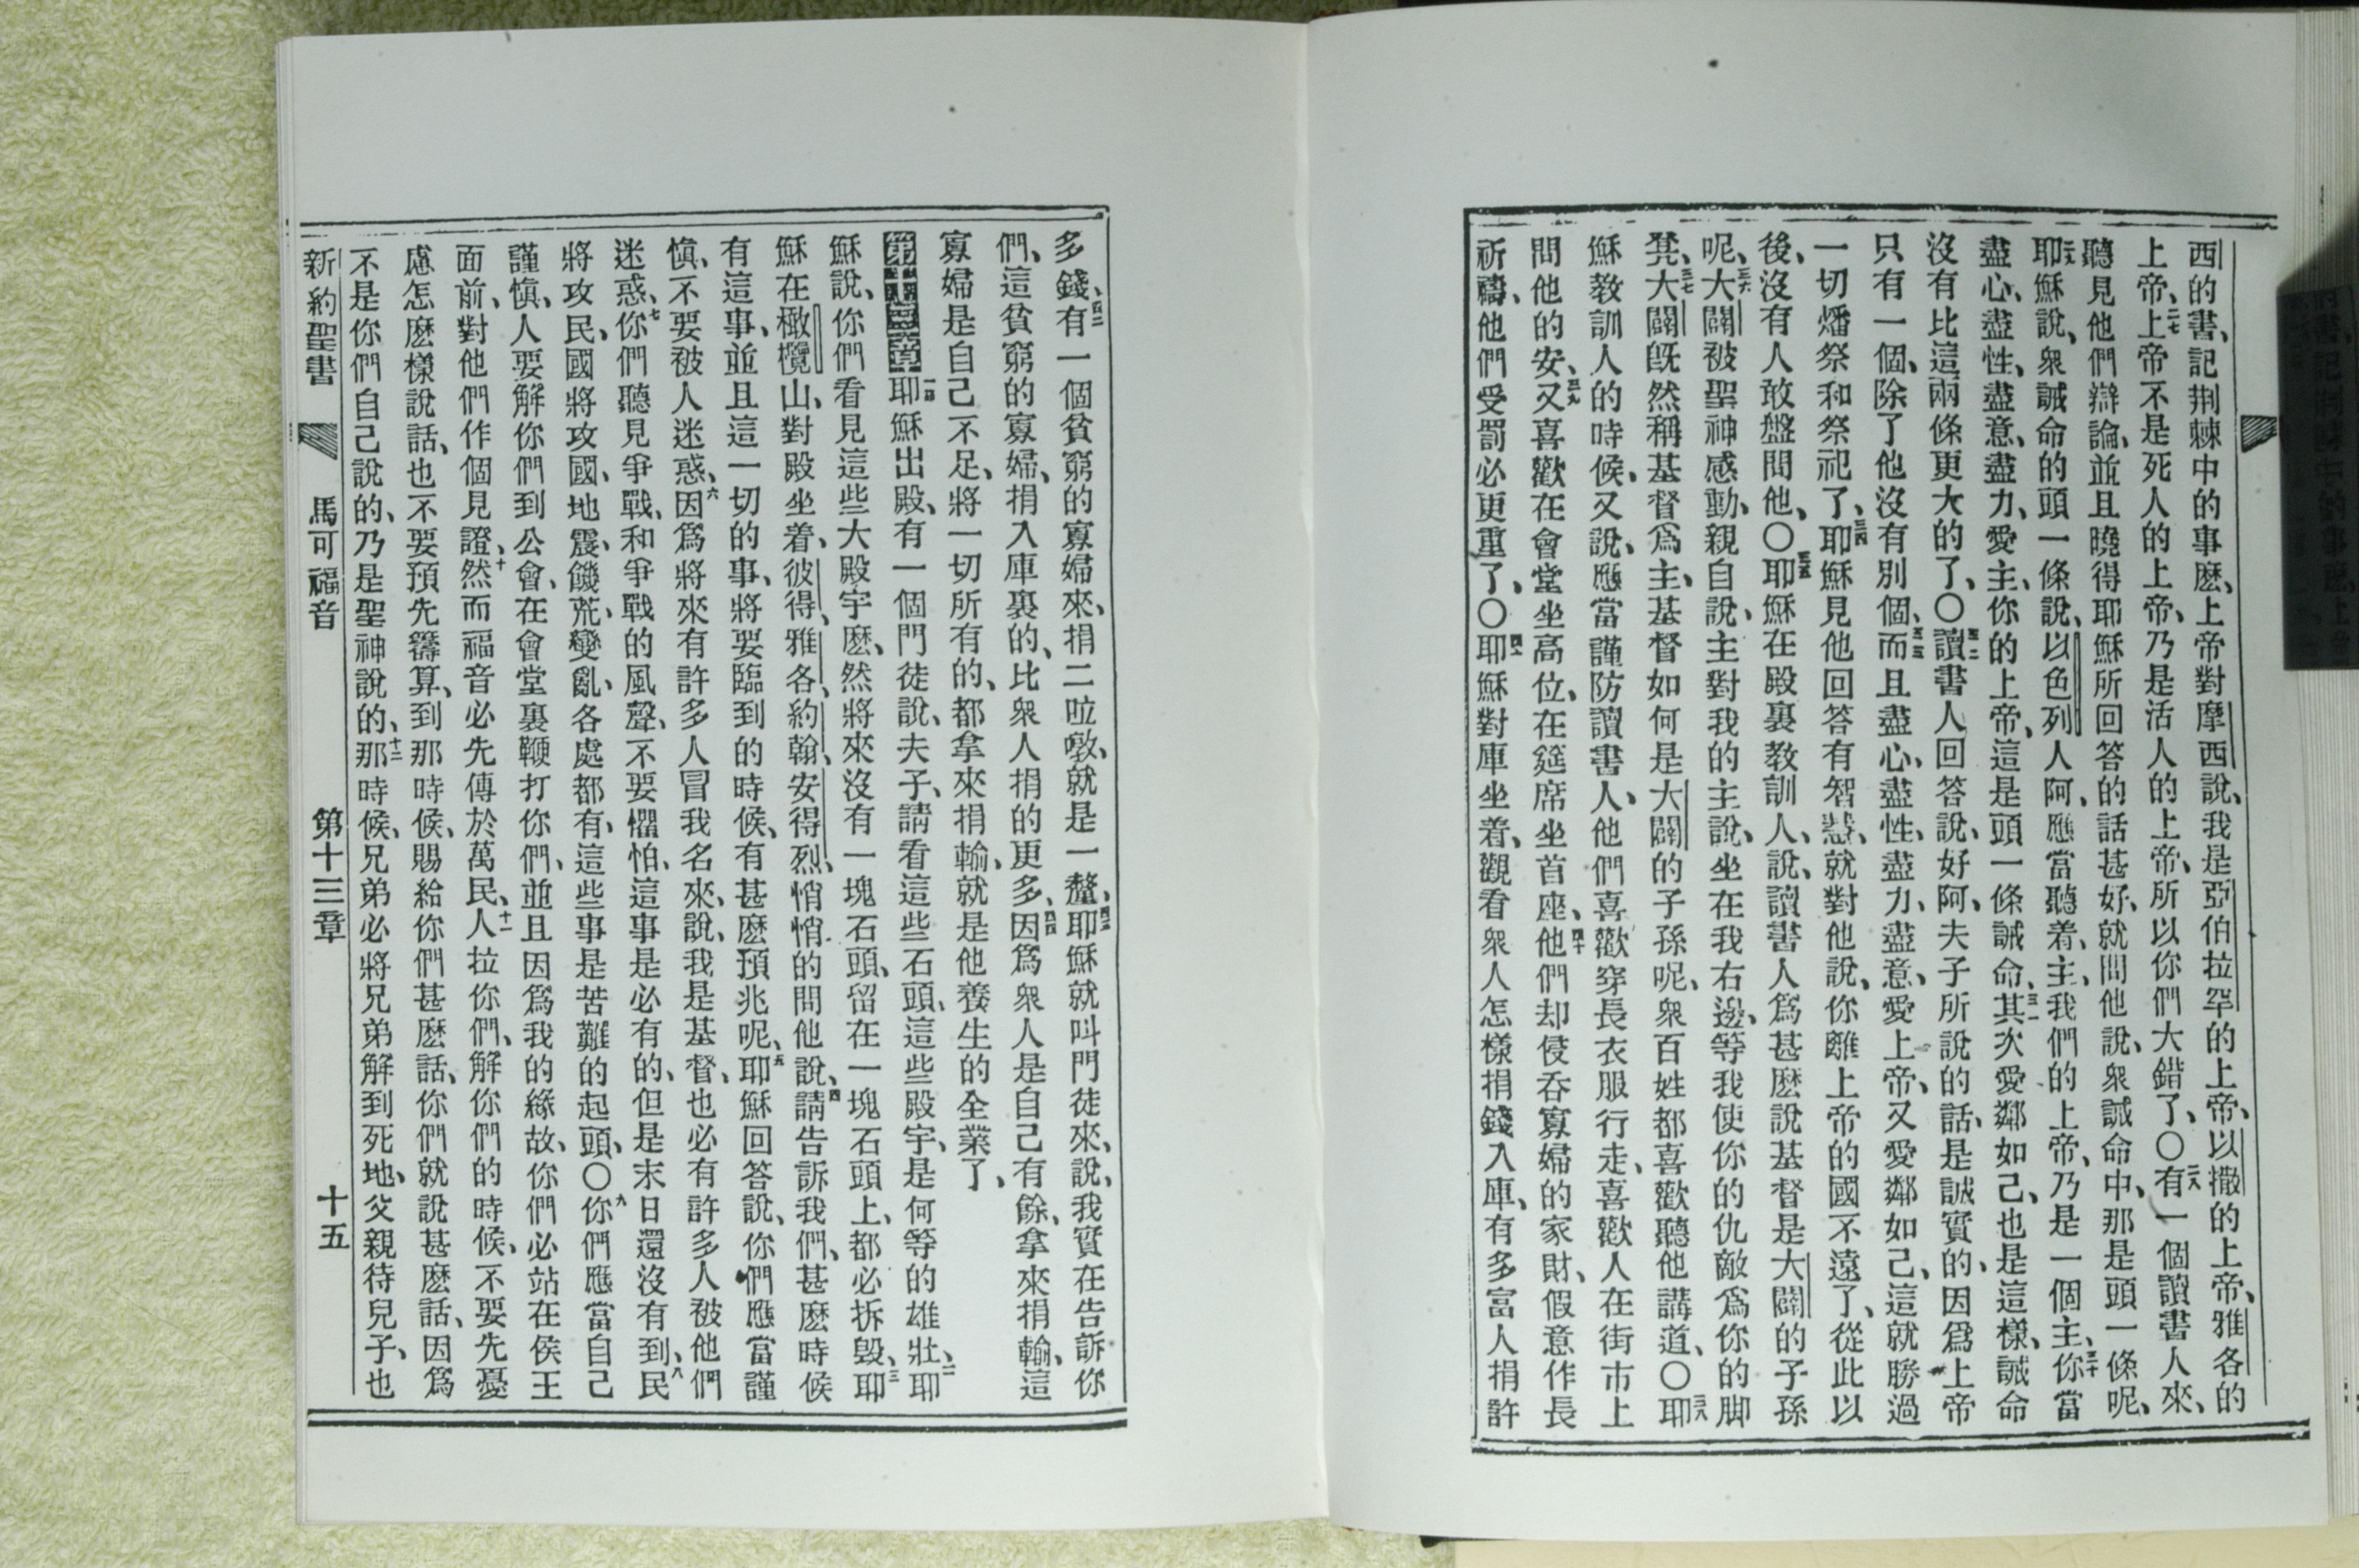 西的書、記荆棘中的事麽、上帝對摩西說、我是亞伯拉罕的上帝、以撒的上帝、雅各的
上帝、二七上帝不是死人的上帝、乃是活人的上帝、所以你們大錯了、〇二八有一個讀書人來、
聽見他們辯論、並且曉得耶穌所回答的話甚好、就問他說、衆誡命中、那是頭一條呢、
二九耶穌說、衆誡命的頭一條說、以色列人阿、應當聽着、主、我們的上帝、乃是一個主、三十你當
盡心、盡性、盡意、盡力、愛主、你的上帝、這是頭一條誡命、三一其次愛鄰如己、也是這樣、誡命
沒有比這兩條更大的了、〇三二讀書人回答說、好阿、夫子所說的話、是誠實的、因爲上帝
只有一個、除了他沒有別個、三三而且盡心、盡性、盡力、盡意、愛上帝、又愛鄰如己、這就勝過
一切燔祭和祭祀了、三四耶穌見他回答有智慧、就對他說、你離上帝的國不遠了、從此以
後、沒有人敢盤問他、〇三五耶穌在殿裏教訓人、說、讀書人爲甚麽說基督是大闢的子孫
呢、三六大闢被聖神感動、親自說、主對我的主說、坐在我右邊、等我使你的仇敵爲你的脚
凳、三七大闢旣然稱基督爲主、基督如何是大闢的子孫呢、衆百姓都喜歡聽他講道、〇三八耶
穌教訓人的時候、又說、應當謹防讀書人、他們喜歡穿長衣服行走、喜歡人在街市上
問他的安、三九又喜歡在會堂坐高位、在筵席坐首座、四十他們却侵吞寡婦的家財、假意作長
祈禱、他們受罰必更重了、〇四一耶穌對庫坐着、觀看衆人怎樣捐錢入庫、有多富人捐許
多錢、四二有一個貧窮的寡婦來、捐二㕸噋、就是一釐、四三耶穌就叫門徒來、說、我實在告訴你
們、這貧窮的寡婦、捐入庫裏的、比衆人捐的更多、四四因爲衆人是自己有餘、拿來捐輸、這
寡婦是自己不足、將一切所有的、都拿來捐輸、就是他養生的全業了、
第十三章一節耶穌出殿、有一個門徒說、夫子、請看這些石頭、這些殿宇、是何等的雄壯、二耶
穌說、你們看見這些大殿宇麽、然將來沒有一塊石頭、留在一塊石頭上、都必拆毀、三耶
穌在橄欖山、對殿坐着、彼得、雅各、約翰、安得烈、悄悄的問他說、四請告訴我們、甚麽時候
有這事、並且這一切的事、將要臨到的時候、有甚麽預兆呢、五耶穌回答說、你們應當謹
愼、不要被人迷惑、六因爲將來有許多人冒我名來、說、我是基督、也必有許多人被他們
迷惑、七你們聽見爭戰、和爭戰的風聲、不要懼怕、這事是必有的、但是末日還沒有到、八民
將攻民、國將攻國、地震、饑荒、變亂、各處都有、這些事是苦難的起頭、〇九你們應當自己
謹愼、人要解你們到公會、在會堂裏鞭打你們、並且因爲我的緣故、你們必站在侯王
面前、對他們作個見證、十然而福音必先傳於萬民、十一人拉你們、解你們的時候、不要先憂
慮怎麽樣說話、也不要預先籌算、到那時候、賜給你們甚麽話、你們就說甚麽話、因爲
不是你們自己說的、乃是聖神說的、十二那時候、兄弟必將兄弟解到死地、父親待兒子、也
新約聖書 馬可福音 第十三章 十五